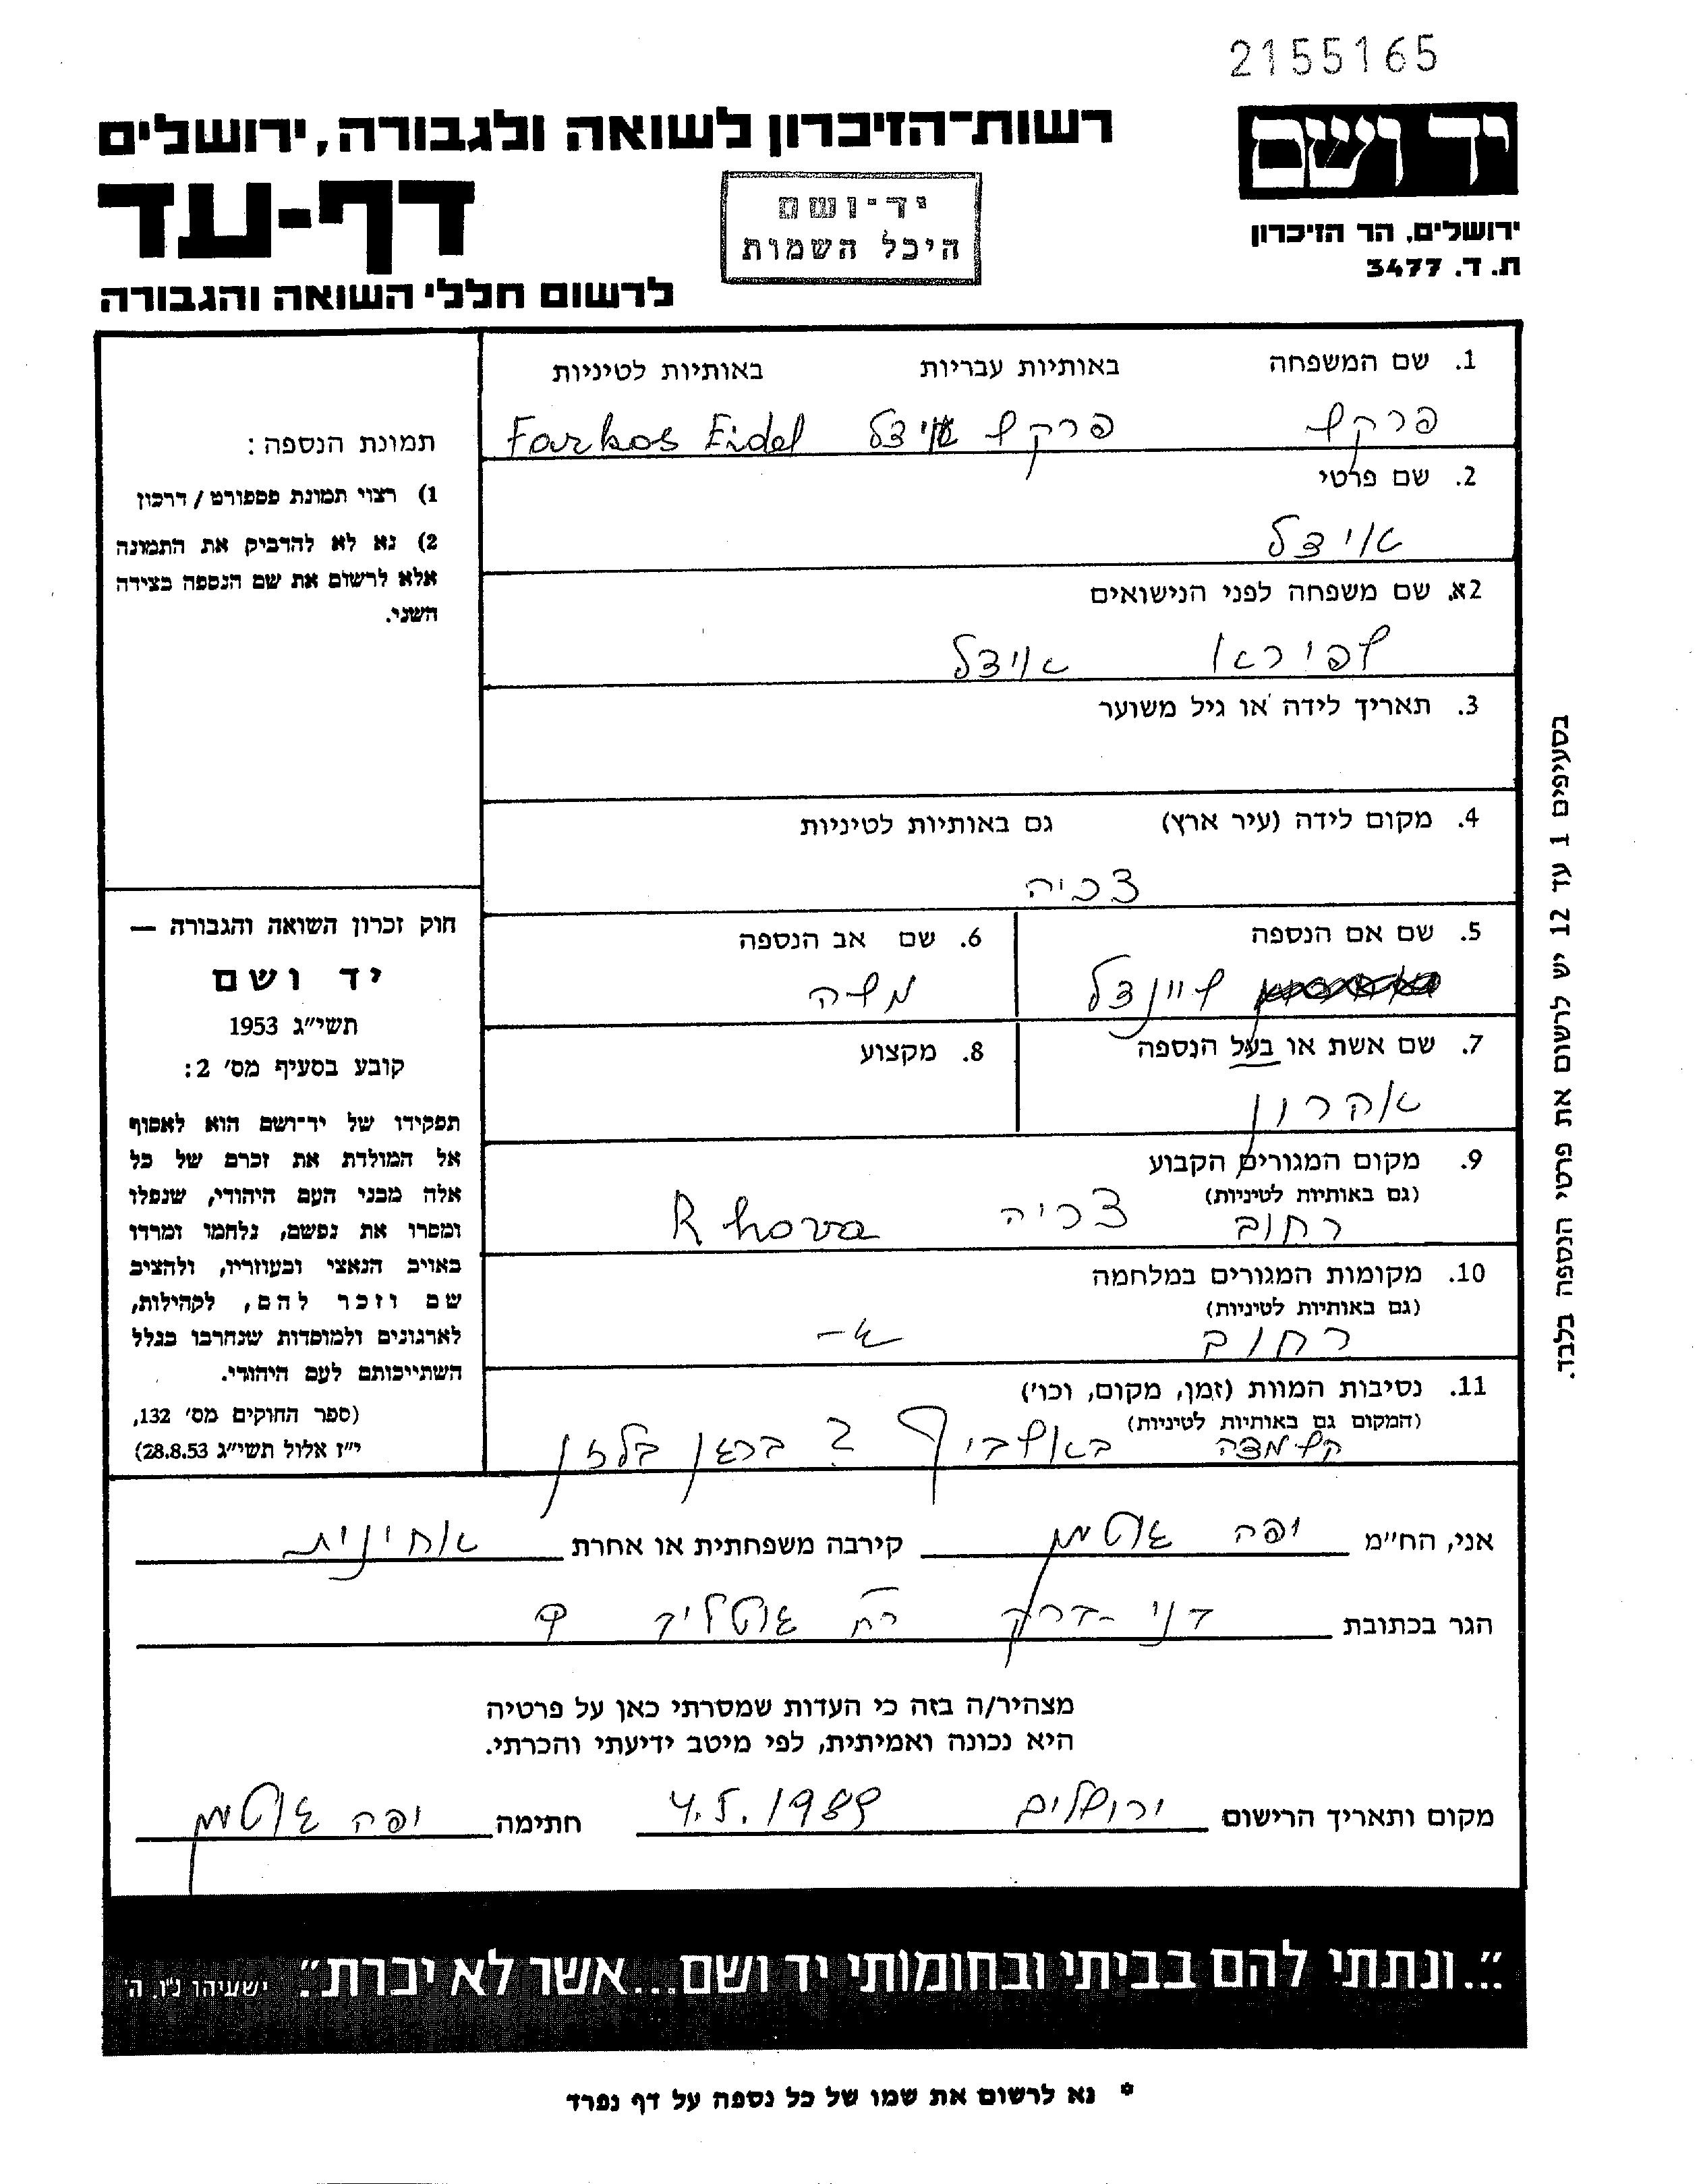 2155165
רשות-הזיכרון לשואה ולגבורה, ירושלים
יד ושם
דף-עד
יד-ושם
היכל השמות
ירושלים, הר הזיכרון
ת. ד. 3477
לרשום חללי השואה והגבורה
1. שם המשפחה באותיות עבריות באותיות לטיניות
פרקש פרקש אידל Farkas Eidel
2. שם פרטי
אידל
2א. שם משפחה לפני הנישואים
שפירא אידל
3. תאריך לידה או גיל משוער
4. מקום לידה (עיר ארץ) גם באותיות לטיניות
צכיה
5. שם אם הנספה
שיינדל
6. שם אב הנספה
משה
7. שם אשת או בעל הנספה
אהרון
8. מקצוע
9. מקום המגורים הקבוע
(גם באותיות לטיניות)
רחוב צכיה Rhova
10. מקומות המגורים במלחמה
(גם באותיות לטיניות)
רחוב
11. נסיבות המוות (זמן, מקום, וכו')
(המקום גם באותיות לטיניות)
באושביץ ברגן בלזן
תמונת הנספה:
1) רצוי תמונת פספורט / דרכון
2) נא לא להדביק את התמונה
אלא לרשום את שם הנספה בצידה
השני.
חוק זכרון השואה והגבורה —
יד ושם
תשי"ג 1953
קובע בסעיף מס' 2:
תפקידו של יד-ושם הוא לאסוף
אל המולדת את זכרם של כל
אלה מבני העם היהודי, שנפלו
ומסרו את נפשם, נלחמו ומרדו
באויב הנאצי ובעוזריו, ולהציב
שם וזכר להם, לקהילות,
לארגונים ולמוסדות שנחרבו בגלל
השתייכותם לעם היהודי.
(ספר החוקים מס' 132,
י"ז אלול תשי"ג 28.8.53)
בסעיפים 1 עד 12 יש לרשום את פרטי הנספה בלבד.
אני, הח"מ יפה גוטמן קירבה משפחתית או אחרת אחינית
הגר בכתובת
מצהיר/ה בזה כי העדות שמסרתי כאן על פרטיה
היא נכונה ואמיתית, לפי מיטב ידיעתי והכרתי.
מקום ותאריך הרישום ירושלים 4.5.1989 חתימה יפה גוטמן
"...ונתתי להם בביתי ובחומותי יד ושם...אשר לא יכרת". ישעיהו נ"ו, ה'
* נא לרשום את שמו של כל נספה על דף נפרד